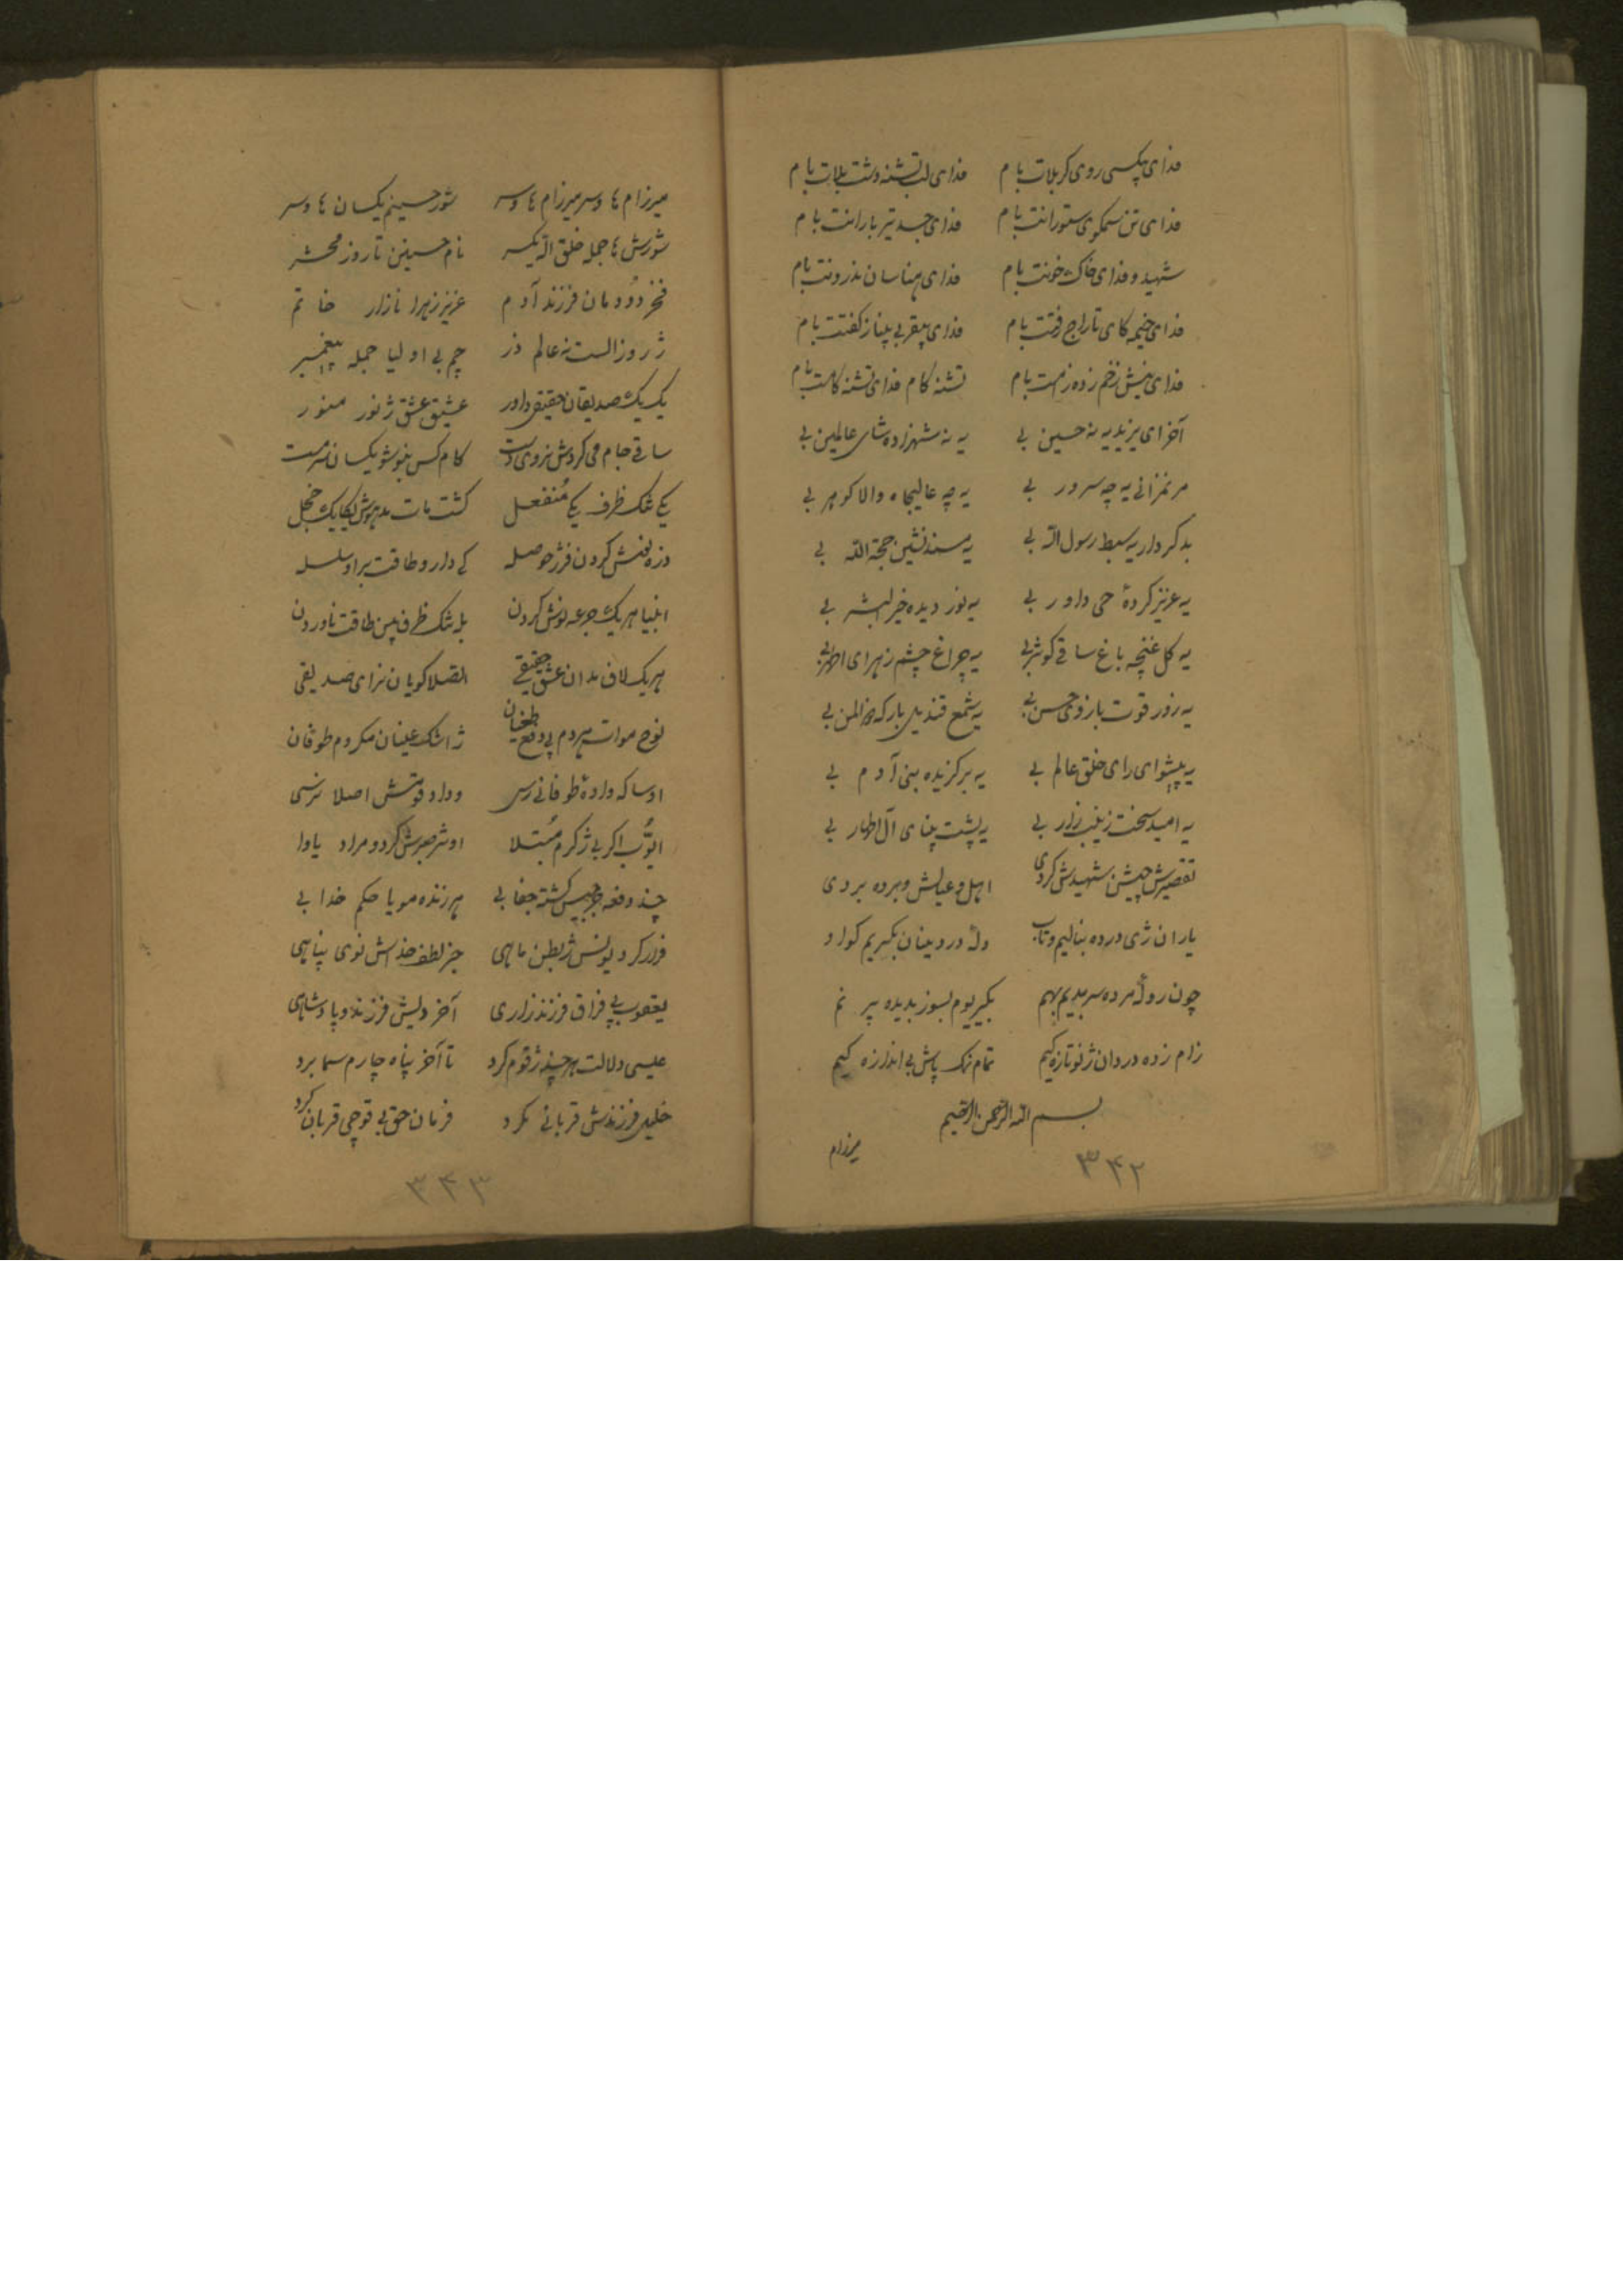 فدای بیکسی روی کربلات بام فدای لب تشنه دشت بلات بام
فدای تن سمکوی ستورانت بام فدای جسد تیر بارانت بام
شهید و فدای خاک خونت بام فدای هناسان بذرونت بام
فدای خیمه کای تاراج رفتت بام فدای بیقر بی
فدای نیش زخم زده زامت بام تشنه کام فدای تشنه کامت بام
آخر ای یزید یه نه حسین بی یه نه شهزاده شای عالمین بی
مر نمزانی یه چه سرور بی یه چه عالیجاه والا کوهر بی
بدکردار یه سبط رسول الله بی یه مسند نشین حجة الله بی
یه عزیز کردهٔ حی داور بی یه نور دیده خیر البشر بی
یه کل غنچه باغ ساقی کوثر بی یه چراغ چشم زهرای اطهر بی
یه زور قوت بازوی حسن بی یه شمع قندیل بارکه ذالمن بی
یه پیشوای رای خلق عالم بی یه برکزیده بنی آدم بی
یه امید سخت زینب زار بی یه پشت پنای آل اطهار بی
تقصیرش چیشن شهیدش کردی اهل و عیالش و برده بردی
یاران ژی درده بنالیم و تاب دله دردینان بکیریم کولاو
چون روله مرده سر بدیم بهم بکیریوم بسوز بدیده پر نم
زام زده دردان ژنو تازه کیم تمام نمک پاش بی اندازه کیم
بسم الله الرحمن الرحیم
میرزام
۳۴۲
میرزام ها وسر میرزام ها وسر شور حسینم یکسان ها وسر
شورش ها جمله خلق الله یکسر نام حسینن تا روز محشر
فخر دودمان فرزند آدم عزیز زهرا نازار خاتم
ژ روز الست نه عالم ذر چم بی اولیا جمله پیغمبر
یک یک صدیقان حقیقی داور عشیق عشق ژ نور منور
ساقی جام می کردش نروی دست کام کس بنوشو یکسان سرمست
یکی تنک ظرف یکی منفعل کشت مات مدهوش یکایک خجل
ذره نوش کردن فرژ حوصله کی دارو طاقت براو سلسله
انبیا هر یک جرعه نوش کردن بله تنک ظرف بین طاقت ناوردن
هر یک لاف مدان عشق حقیقی الصلا کویان نرای صدیقی
نوح موات هردم پی دفع طغیان ژ اشک عینان مکروم طوفان
اوسا که دادهٔ طوفانی رس و داد قومش اصلا نرسی
ایّوب اکر بی ژ کرم مُبتلا اوش صبرش کرد و مراد یاوا
چند دفعه جرجیس کشته جفا بی هر زنده مویا حکم خدا بی
فرار کرد یونس ژ بطن ماهی جز لطف خداش نوی پناهی
یعقوب بی فراق فرزند زاری آخر دیش فرزند و پادشاهی
عیسی دلالت هر چند ژ قوم کرد تا آخر پناه چارم سما برد
خلیل فرزندش قربانی نکرد فرمان حق بی قوچی قربان کرد
۳۴۳